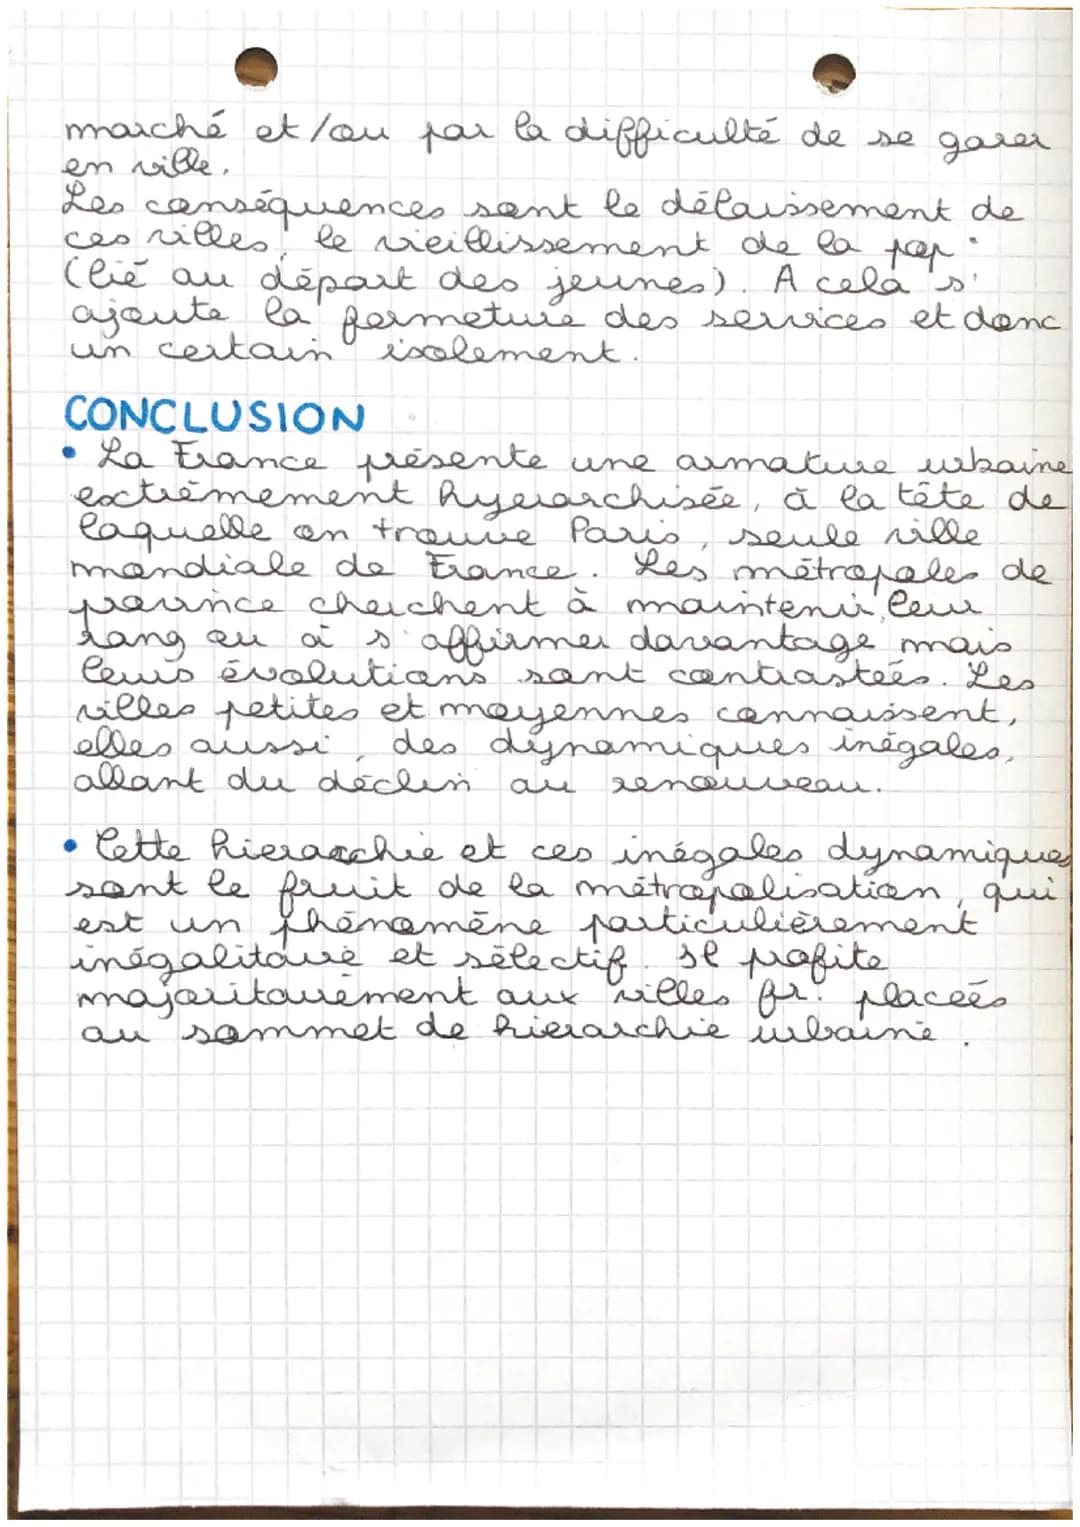 marché et/ou par la difficulté de se garer
en ville.
Les conséquences sont le délaissement de
ces villes, le vieillissement de la pop°
(lié au départ des jeunes). A cela s'
ajoute la fermeture des services et donc
un certain isolement.
CONCLUSION
• La France présente une armature urbaine
extrêmement hyerarchisée, à la tête de
laquelle on trouve Paris, seule ville
mondiale de France. Les métropoles de
province cherchent à maintenir leur
rang ou à s'affirmer davantage mais
leurs évolutions sont contrastées. Les
villes petites et moyennes connaissent,
elles aussi, des dynamiques inégales,
allant du déclin au renouveau.
• Cette hierarchie et ces inégales dynamiques
sont le fruit de la métropolisation, qui
est un phénomène particulièrement
inégalitaire et sélectif. Il profite
majoritairement aux villes fr. placées
au sommet de hierarchie urbaine.